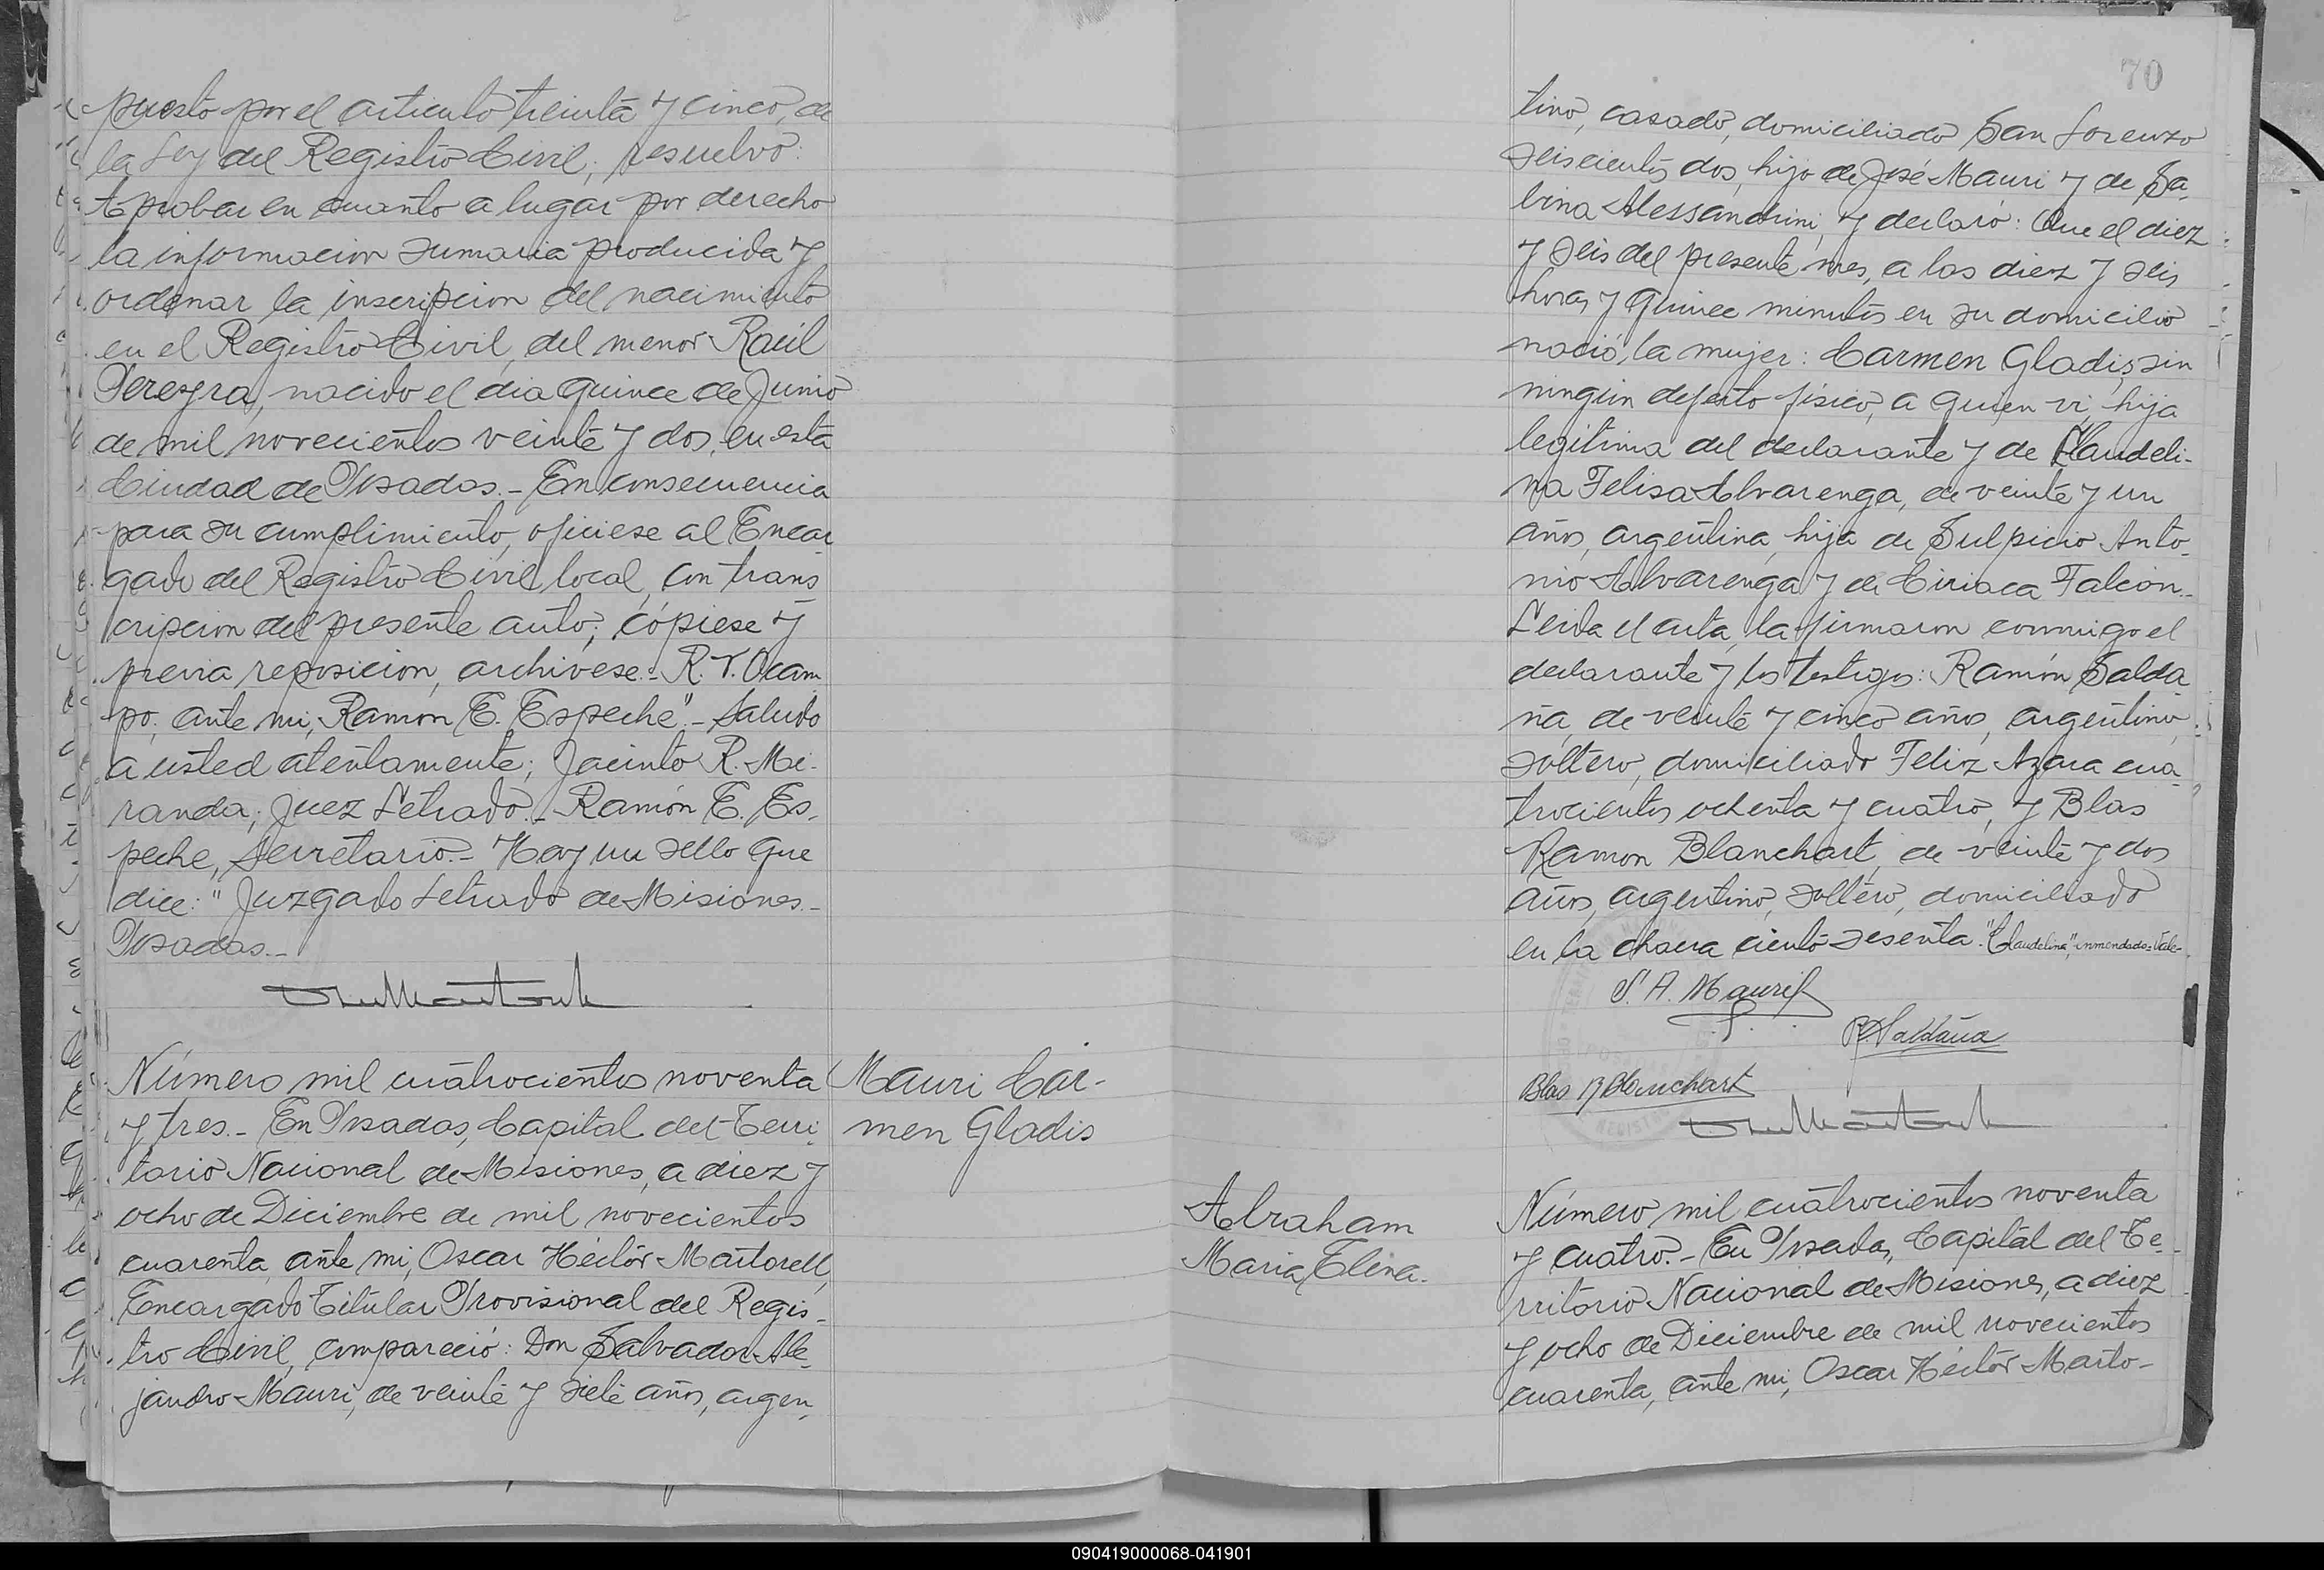 puesto por el articulo treinta y cinco, de
la Ley del Registro Civil, resuelvo:
Aprobar en cuanto a lugar por derecho
la informacion sumaria producida y
ordenar la inscripcion del nacimiento
en el Registro Civil, del menor Raúl
Pereyra, nacido el día quince de Junio
de mil novecientos veinte y dos, en esta
Ciudad de Posadas.- En consecuencia
para su cumplimiento, oficiese al Encar
gado del Registro Civil local, con trans
cripcion del presente auto; cópiese y
previa reposicion, archivese.- R. V. Ocam
po, ante mi, Ramon E. Espeche".- Saludo
a usted atentamente; Jacinto R. Mi-
randa; Juez Letrado.- Ramón E. Es-
peche, Secretario.- Hay un sello que
dice: "Juzgado Letrado de Misiones.-
Posadas.-
Número mil cuatrocientos noventa
y tres.- En Posadas, Capital del Terri-
torio Nacional de Misiones, a diez y
ocho de Diciembre de mil novecientos
cuarenta, ante mi, Oscar Héctor Martorell,
Encargado Titular Provisional del Regis-
tro Civil, compareció: Don Salvador Ale-
jandro Mauri, de veinte y siete años, argen-
Mauri Car-
men Gladis
70
tino, casado, domiciliado San Lorenzo
seiscientos dos, hijo de José Mauri y de Sa-
bina Alessandrini, y declaró: Que el diez
y seis del presente mes, a las diez y seis
horas y quince minutos en su domicilio
nació, la mujer: Carmen Gladis, sin
ningún defecto físico, a quien vi, hija
legitima del declarante y de Claudeli-
na Felisa Alvarenga, de veinte y un
años, argentina, hija de Sulpicio Anto-
nio Alvarenga y de Ciriaca Falcón.-
Leida el acta, la firmaron conmigo el
declarante y los testigos: Ramón Salda
ña, de veinte y cinco años, argentino,
soltero, domiciliado Feliz Azara cua-
trocientos ochenta y cuatro, y Blas
Ramon Blanchart, de veinte y dos
años, argentino, soltero, domiciliado
en la chacra ciento sesenta. "Claudelina", enmendado=Vale-
S. A. Mauri
R Saldaña
Blas R Blanchart
Abraham
Maria Elena.
Número mil cuatrocientos noventa
y cuatro.- En Posadas, Capital del Te-
rritorio Nacional de Misiones, a diez
y ocho de Diciembre de mil novecientos
cuarenta, ante mi, Oscar Héctor Marto-
090419000068-041901